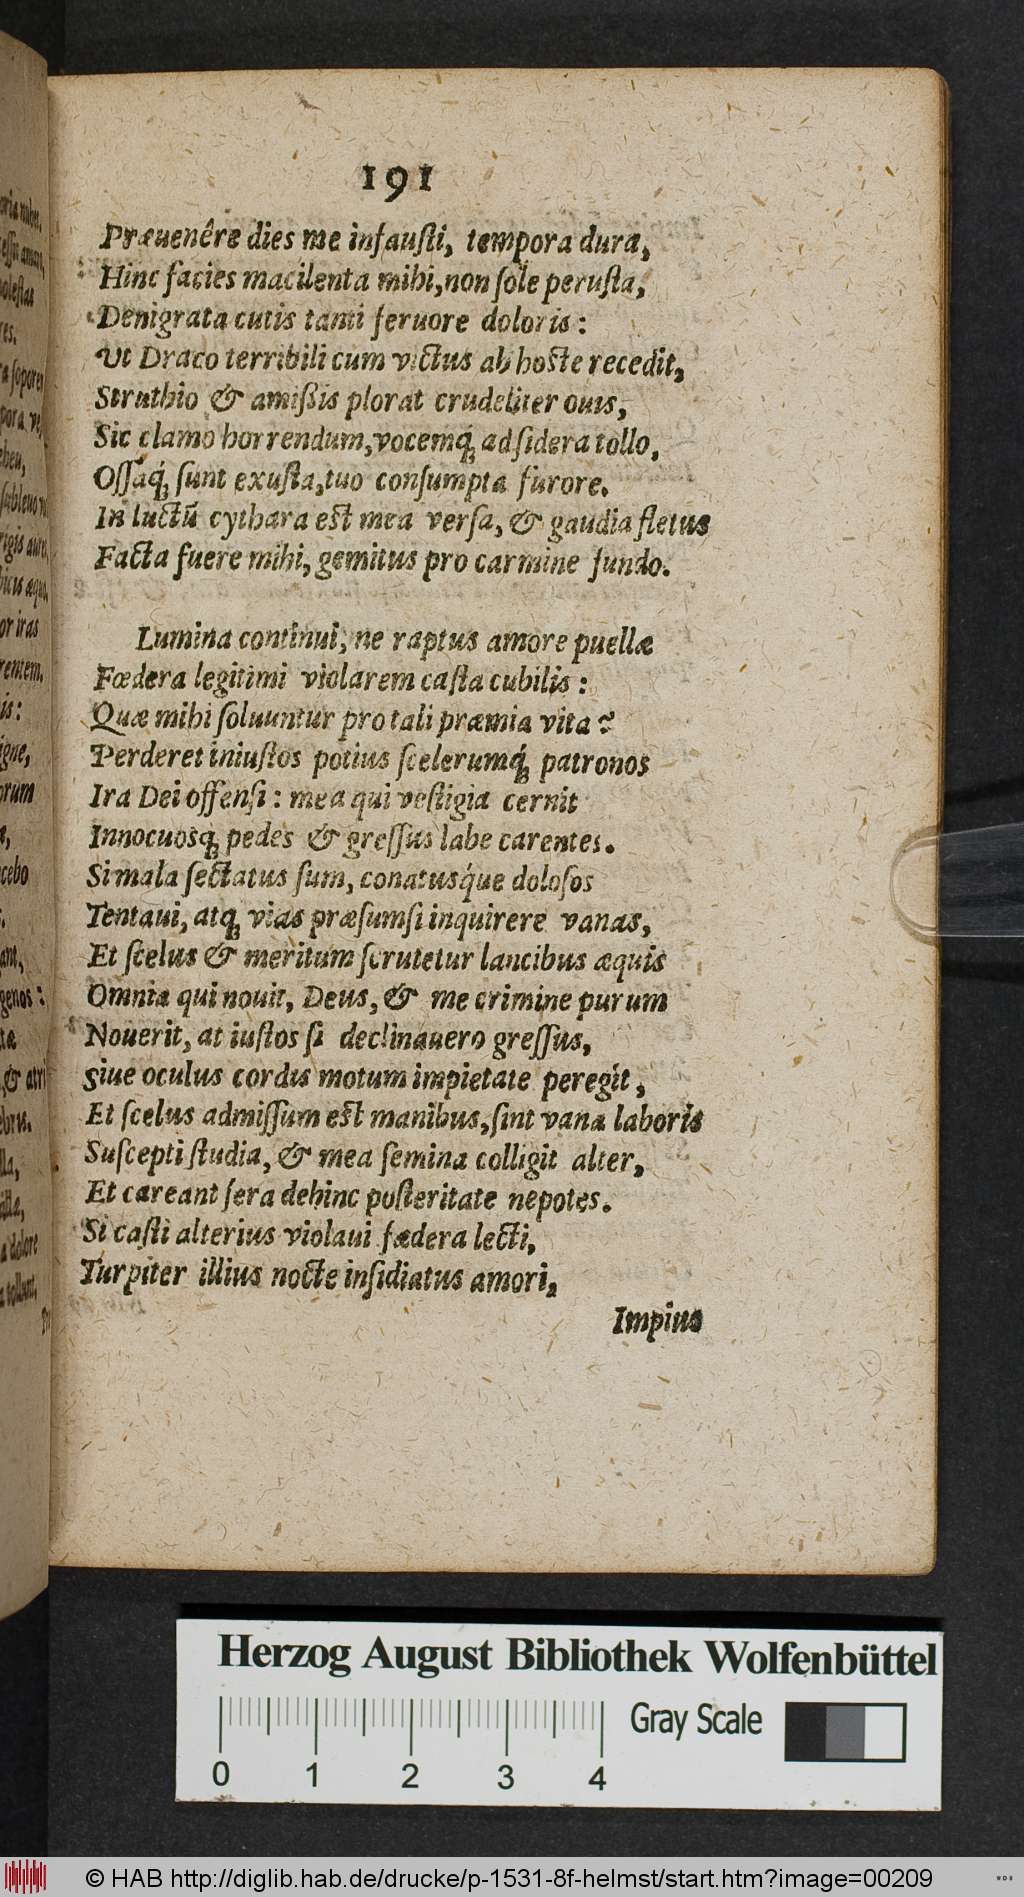 191
Præuenêre dies me infausti, tempora dura,
Hinc facies macilenta mihi, non sole perusta,
Denigrata cutis tanti feruore doloris:
Ut Draco terribili cum victus ab hoste recedit,
Struthio & amißis plorat crudeliter ouis,
Sic clamo horrendum, vocemq́; ad sidera tollo,
Ossaq́; sunt exusta, tuo consumpta furore.
In luctũ cythara est mea versa, & gaudia fletus
Facta fuere mihi, gemitus pro carmine fundo.
Lumina continui, ne raptus amore puellæ
Fœdera legitimi violarem casta cubilis:
Quæ mihi soluuntur pro tali præmia vita?
Perderet iniustos potius scelerumq́; patronos
Ira Dei offensi: mea qui vestigia cernit
Innocuosq; pedes & gressus labe carentes.
Si mala sectatus sum, conatusq́ue dolosos
Tentaui, atq; vias præsumsi inquirere vanas,
Et scelus & meritum scrutetur lancibus æquis
Omnia qui nouit, Deus, & me crimine purum
Nouerit, at iustos si declinauero gressus,
Siue oculus cordis motum impietate peregit,
Et scelus admissum est manibus, sint vana laboris
Suscepti studia, & mea semina colligit alter,
Et careant sera dehinc posteritate nepotes.
Si casti alterius violaui fædera lecti,
Turpiter illius nocte insidiatus amori,
Impius
Herzog August Bibliothek Wolfenbüttel
Gray Scale
0 1 2 3 4
© HAB http://diglib.hab.de/drucke/p-1531-8f-helmst/start.htm?image=00209